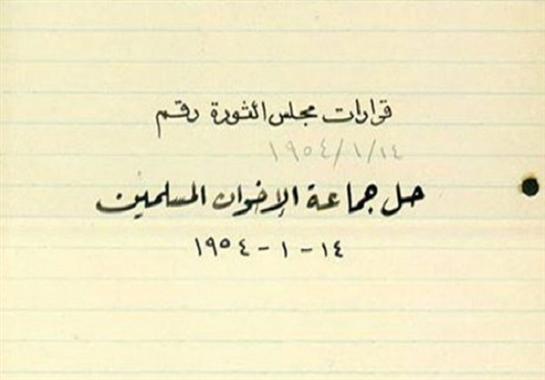 قرارات مجلس الثورة رقم
١٩٥٤/١/١٤
حل جماعة الإخوان المسلمين
١٤ - ١ - ١٩٥٤